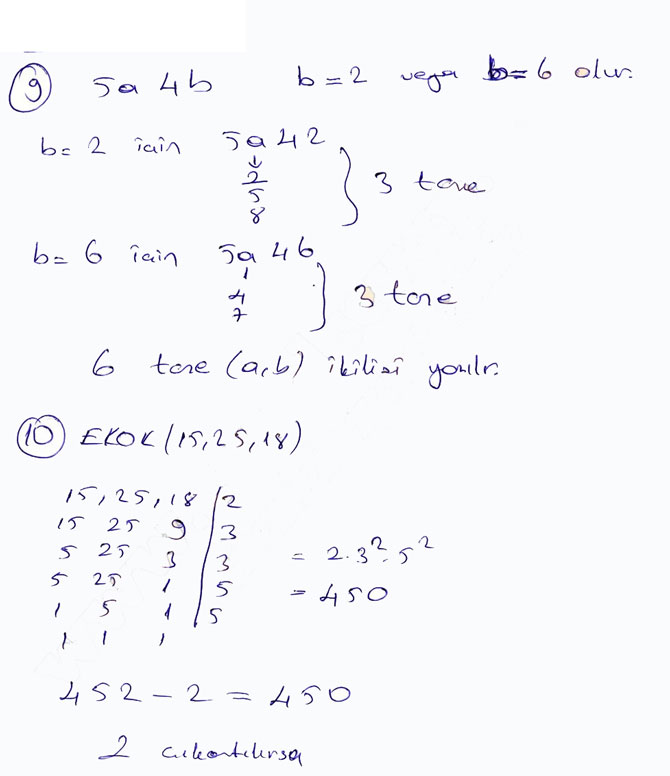 9 5a4b b=2 veya b=6 olur.
b=2 için 5a42
↓
2
5
8
} 3 tane
b=6 için 5a46
1
4
7
} 3 tane
6 tane (a,b) ikilisi yazılır.
10 EKOK(15,25,18)
15, 25, 18 | 2
15 25 9 | 3
5 25 3 | 3
5 25 1 | 5
1 5 1 | 5
1 1 1
= 2.3².5²
= 450
452 - 2 = 450
2 çıkartılırsa